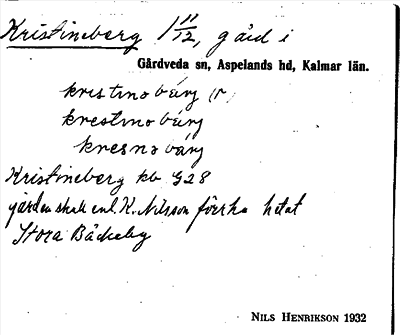 Kristineberg 1 11/12, gård i
Gårdveda sn, Aspelands hd, Kalmar län.
kristinobärj (r)
krestinobärj
kresnobärj
Kristineberg kb G28
gården skall enl. K. Nilsson förr ha hetat
Stora Bäckeby
NILS HENRIKSON 1932